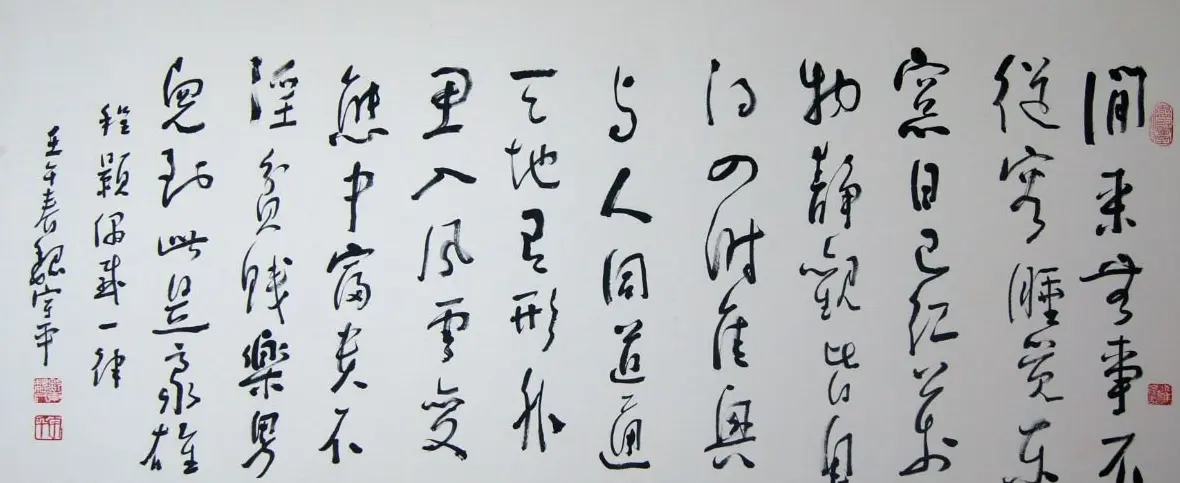 閒来無事不
從容睡覺東
窓日已红萬
物静觀皆自
得四时佳興
与人同道通
天地有形外
思入风雲變
態中富贵不
淫貧賤樂男
兒到此是豪雄
程顥偶成一律
壬午春魏宇平